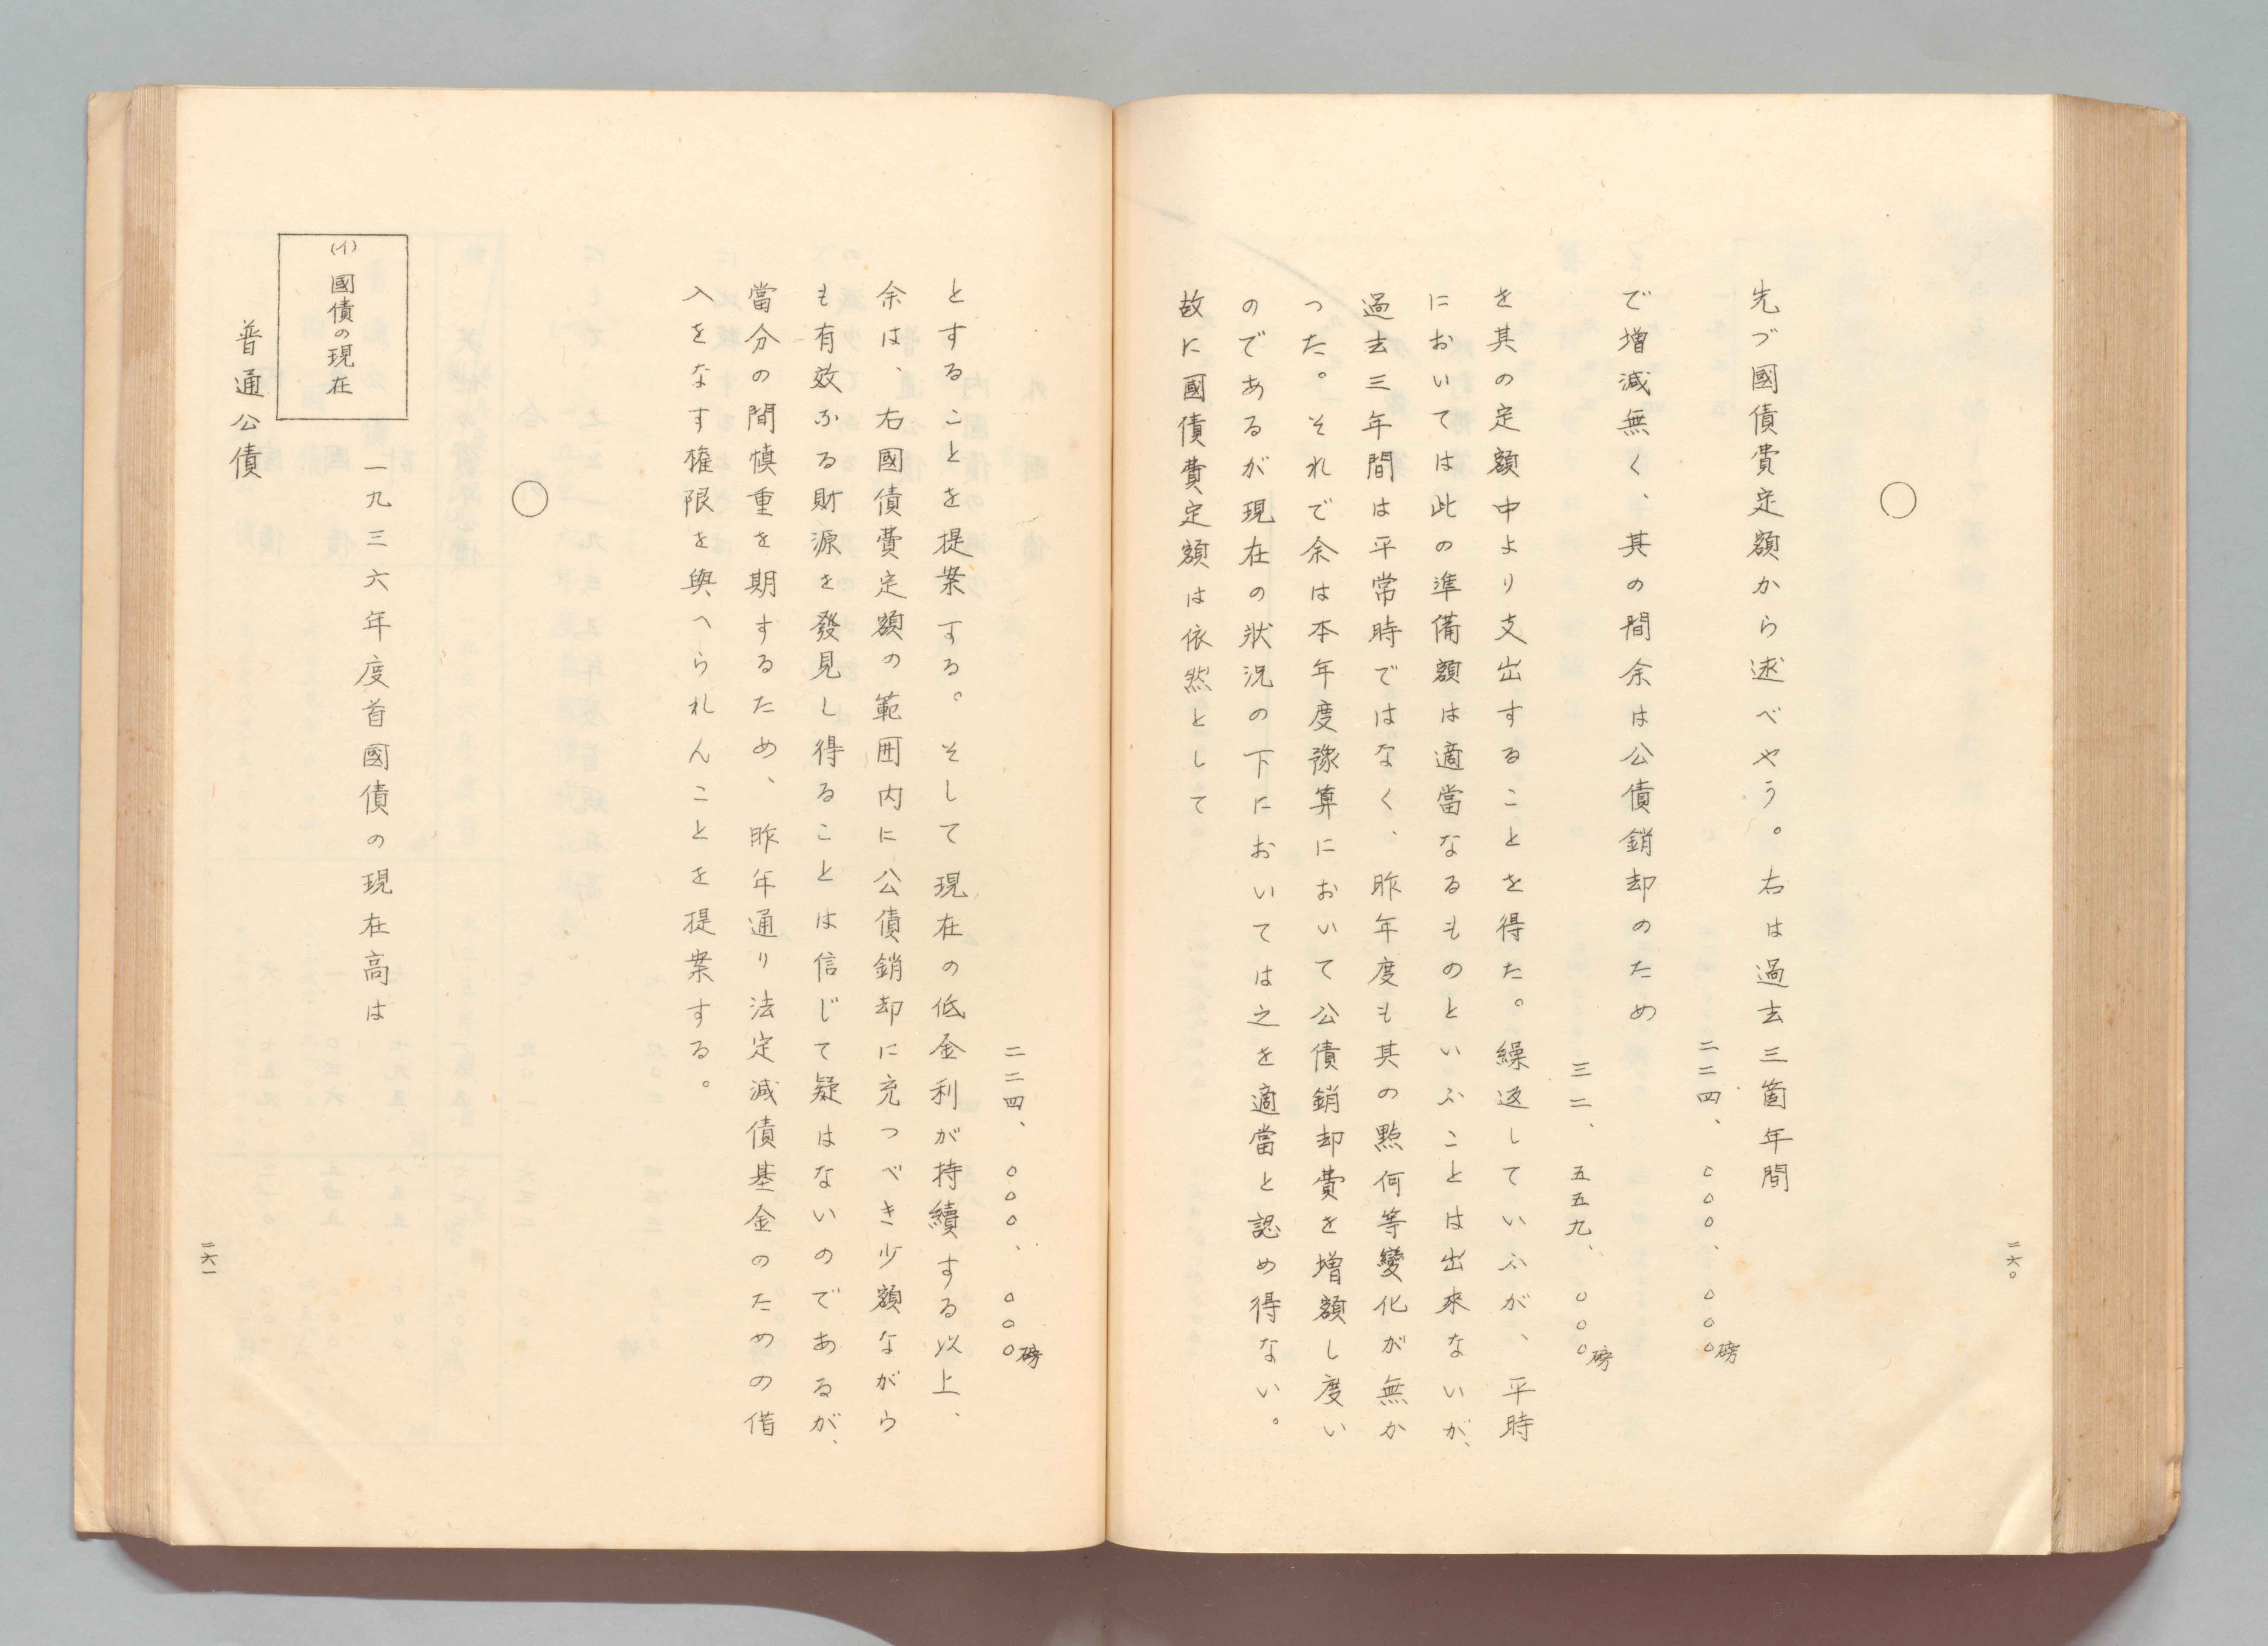 二六〇
〇
先づ國債費定額から述べやう。右は過去三箇年間
二二四、〇〇〇、〇〇〇磅
で増減無く、其の間余は公債銷却のため
三二、五五九、〇〇〇磅
を其の定額中より支出することを得た。繰返していふが、平時
においては此の準備額は適當なるものといふことは出來ないが、
過去三年間は平常時ではなく、昨年度も其の點何等變化が無か
つた。それで余は本年度豫算において公債銷却費を増額し度い
のであるが現在の狀況の下においては之を適當と認め得ない。
故に國債費定額は依然として
二二四、〇〇〇、〇〇〇磅
とすることを提案する。そして現在の低金利が持續する以上、
余は、右國債費定額の範囲内に公債銷却に充つべき少額ながら
も有效なる財源を發見し得ることは信じて疑はないのであるが、
當分の間慎重を期するため、昨年通り法定減債基金のための借
入をなす権限を與へられんことを提案する。
〇
(イ) 國債の現在
一九三六年度首國債の現在高は
普通公債
二六一